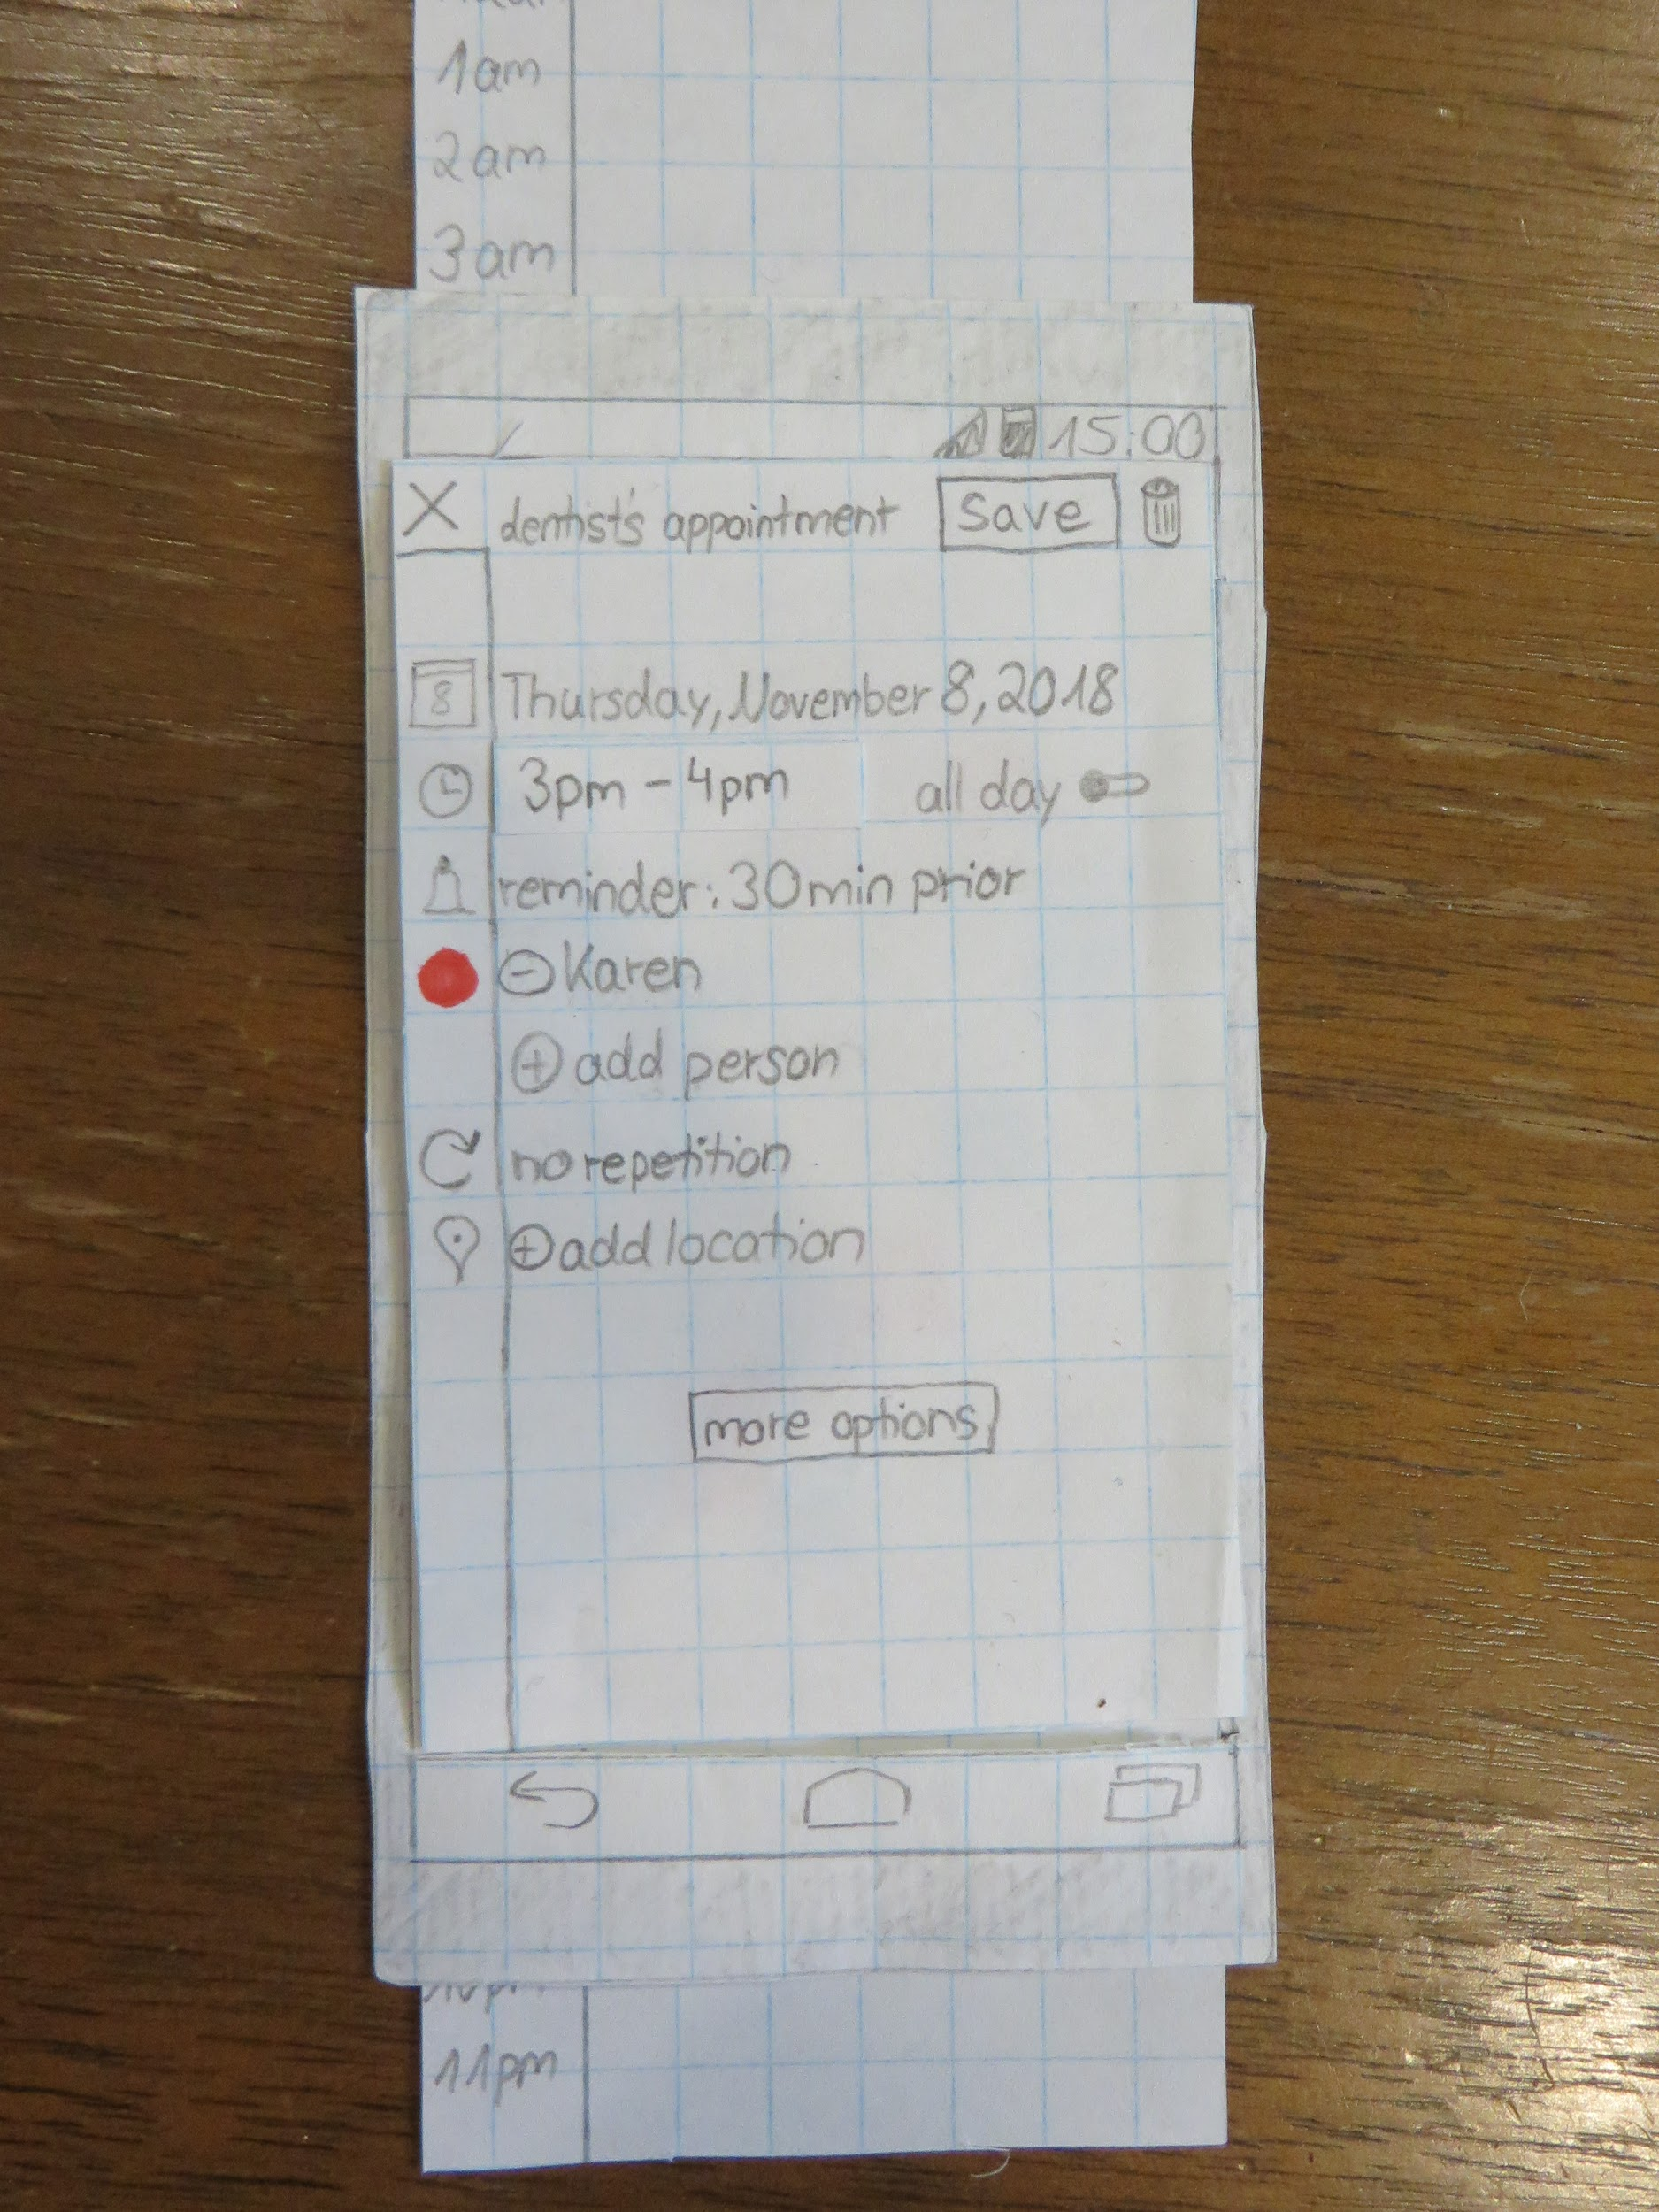 1am
2am
3am
15:00
X dentist's appointment Save
8 Thursday, November 8, 2018
3pm - 4pm all day
reminder: 30min prior
Karen
add person
no repetition
add location
more options
11pm